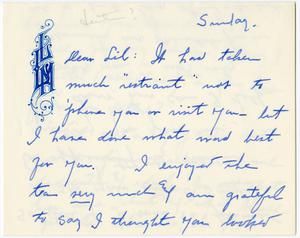 Sunday.
LLM
Dear Sil: It has taken
much "restraint" not to
'phone you or visit you - but
I have done what was best
for you. I enjoyed the
tea very much & I am grateful
to say I thought you looked